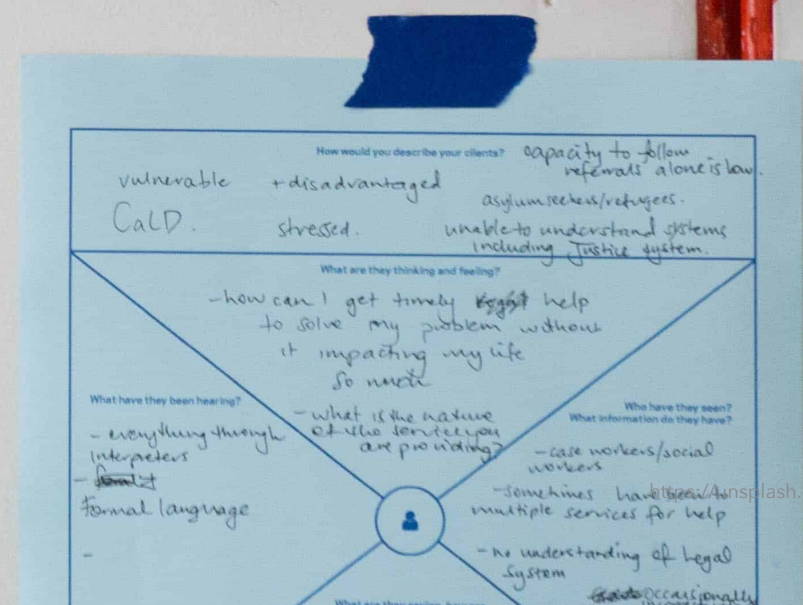 How would you describe your clients?
capacity to follow
referrals alone is low.
vulnerable + disadvantaged
asylum seekers/refugees.
CaLD. stressed.
unable to understand systems
including Justice system.
What are they thinking and feeling?
- how can I get timely help
to solve my problem without
it impacting my life
so much
- what is the nature
of the service you
are providing?
What have they been hearing?
- everything through
interpreters
-
Formal language
-
Who have they seen?
What information do they have?
- case workers/social
workers
- sometimes have been to
multiple services for help
- no understanding of Legal
system
Occasionally
https://unsplash.
What are they